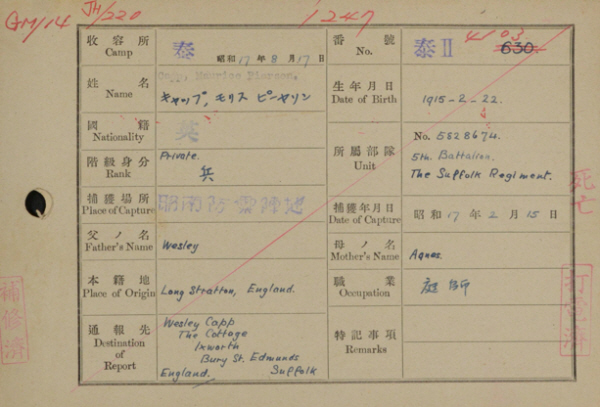 GM/14
JH/220
1247
收容所 Camp 泰 昭和17年8月17日
番號 No. 泰II 4103 630.
姓名 Name Capp, Maurice Pierson.
キャップ, モリス ピーヤソン
生年月日 Date of Birth 1915-2-22.
國籍 Nationality 英
階級身分 Rank Private. 兵
所屬部隊 Unit No. 5828674.
5th. Battalion.
The Suffolk Regiment.
死亡
捕獲場所 Place of Capture
捕獲年月日 Date of Capture 昭和17年2月15日
父ノ名 Father's Name Wesley
母ノ名 Mother's Name Agnes.
本籍地 Place of Origin Long Stratton, England.
職業 Occupation 庭師
通報先 Destination of Report Wesley Capp
The Cottage
Ixworth
Bury St. Edmunds
England. Suffolk
特記事項 Remarks
補修済